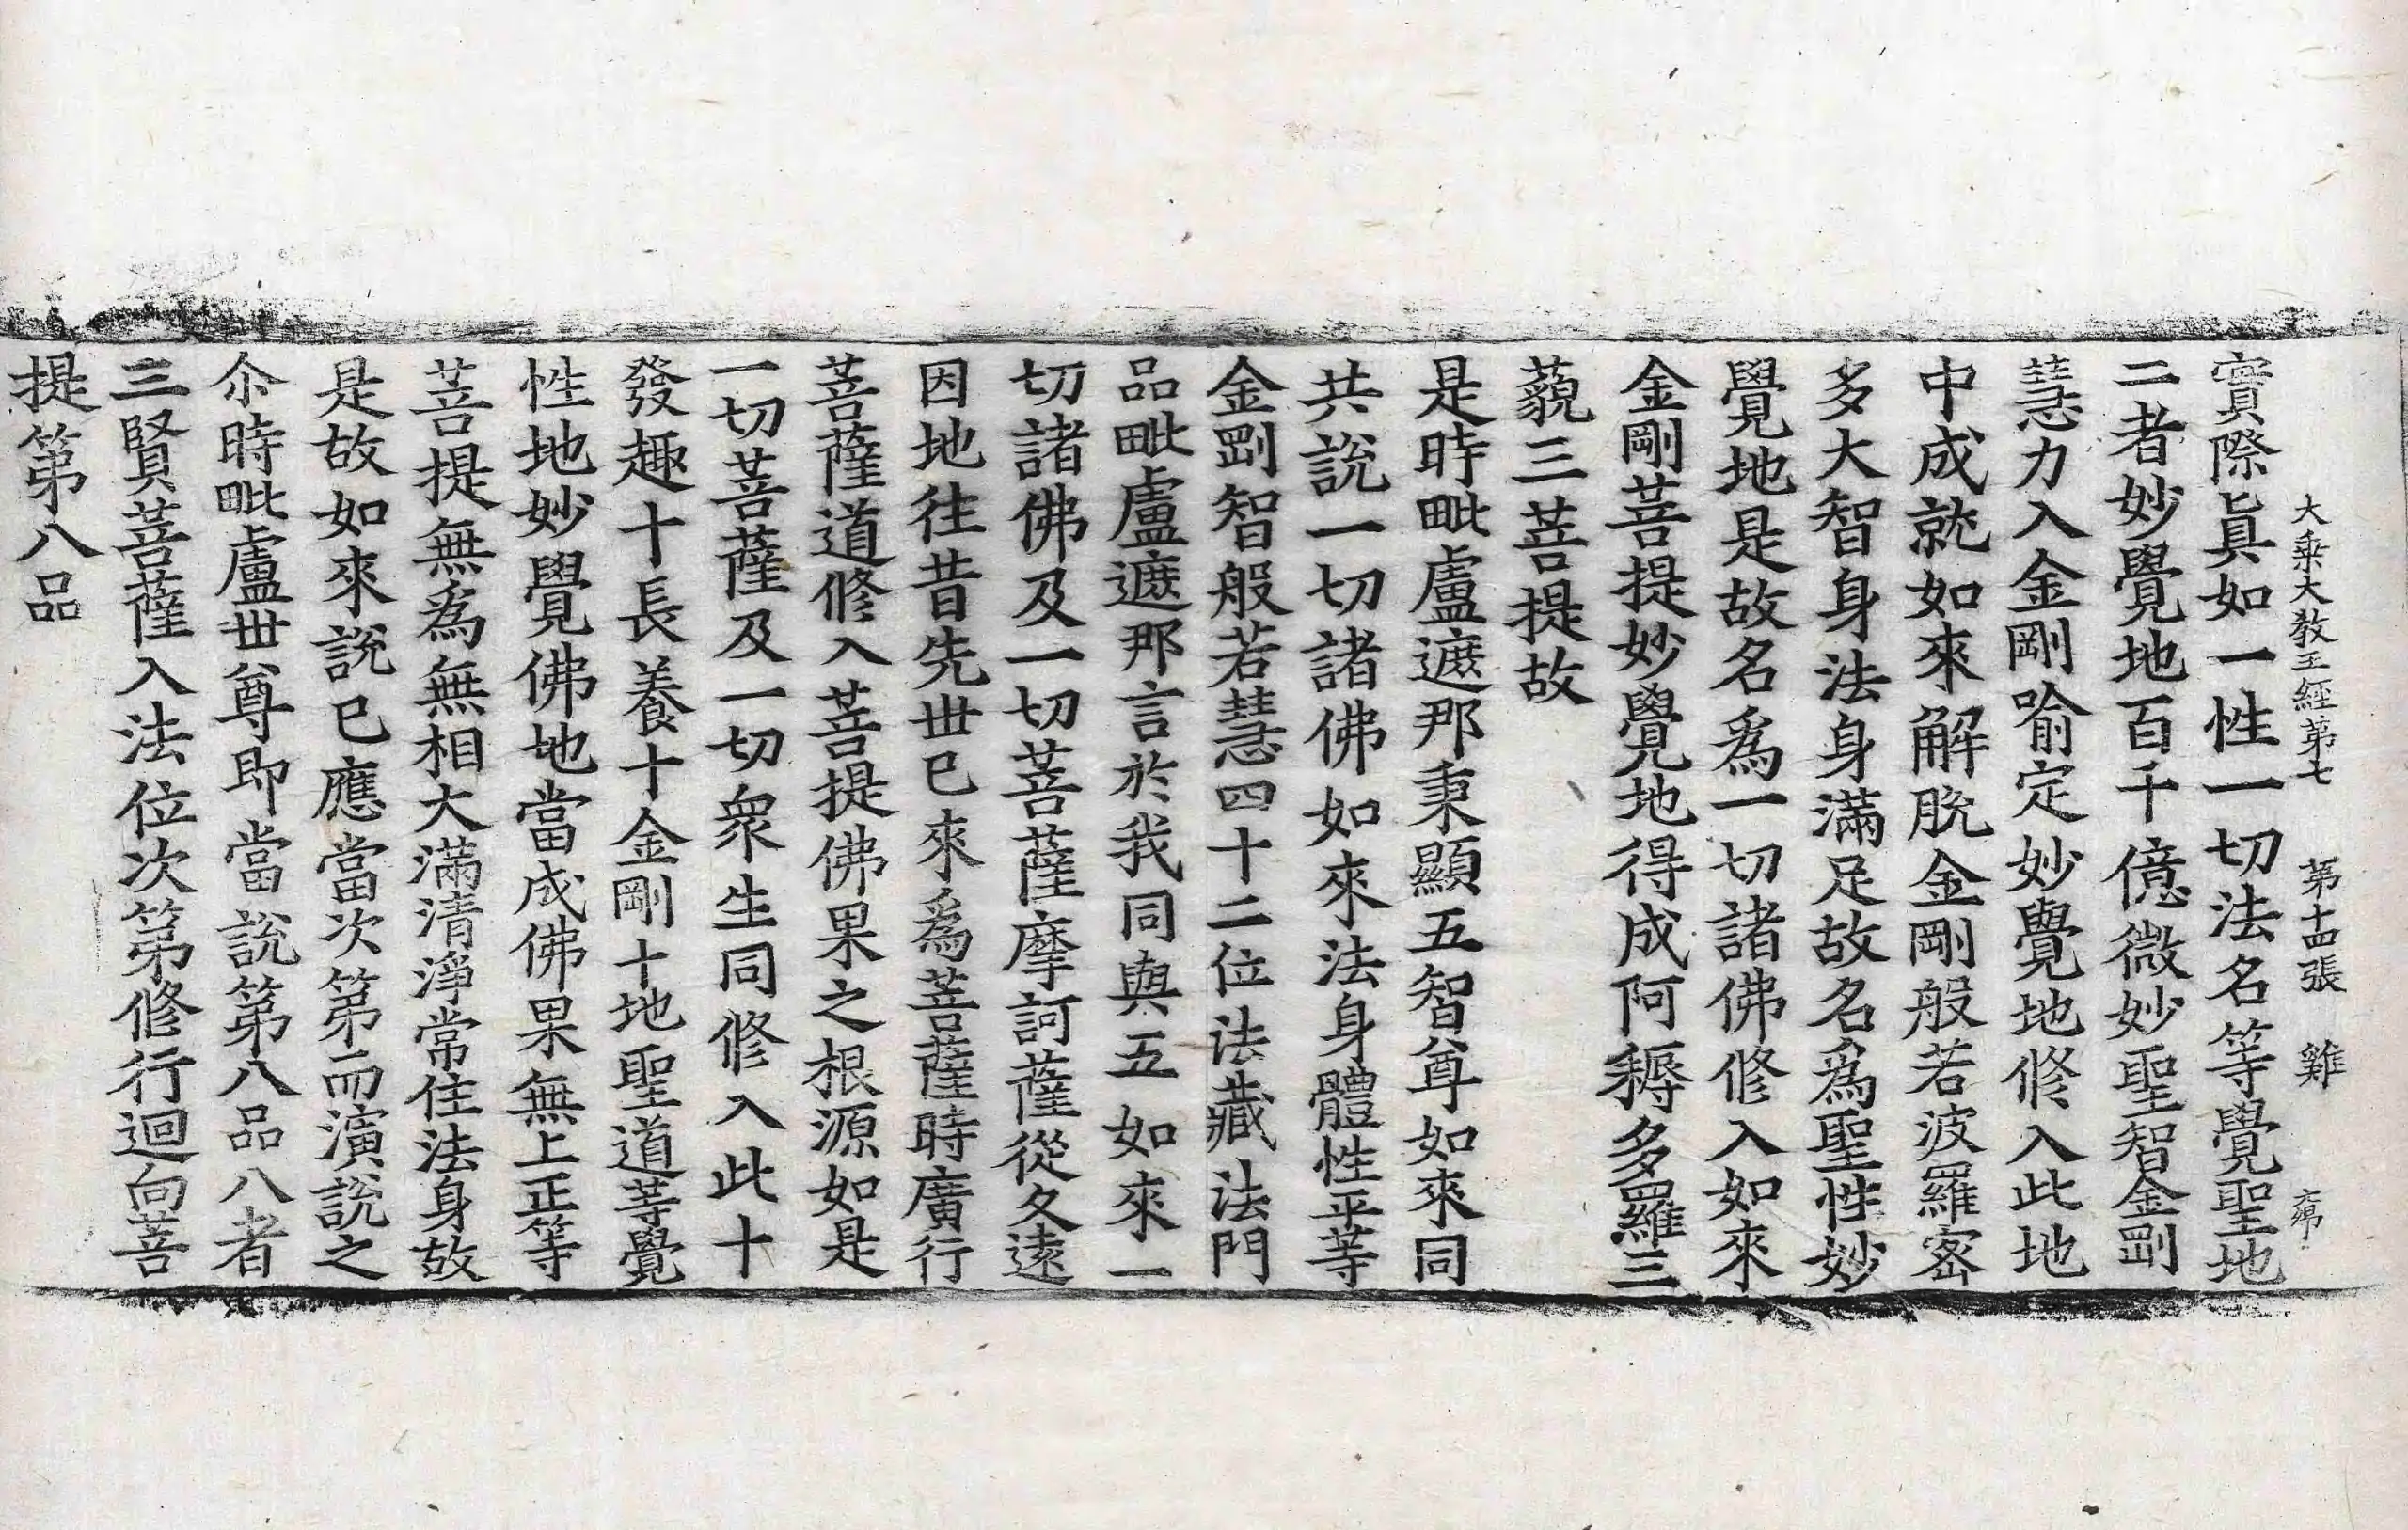 大乘大教王經第七 第十四張 雞
實際眞如一性一切法名等覺聖地
二者妙覺地百千億微妙聖智金剛
慧力入金剛喻定妙覺地修入此地
中成就如來解脫金剛般若波羅蜜
多大智身法身滿足故名爲聖性妙
覺地是故名爲一切諸佛修入如來
金剛菩提妙覺地得成阿耨多羅三
藐三菩提故
是時毗盧遮那秉顯五智尊如來同
共說一切諸佛如來法身體性平等
金剛智般若慧四十二位法藏法門
品毗盧遮那言於我同與五如來一
切諸佛及一切菩薩摩訶薩從久遠
因地往昔先世已來爲菩薩時廣行
菩薩道修入菩提佛果之根源如是
一切菩薩及一切衆生同修入此十
發趣十長養十金剛十地聖道等覺
性地妙覺佛地當成佛果無上正等
菩提無爲無相大滿清淨常住法身故
是故如來說已應當次第而演說之
尒時毗盧世尊即當說第八品八者
三賢菩薩入法位次第修行迴向菩
提第八品